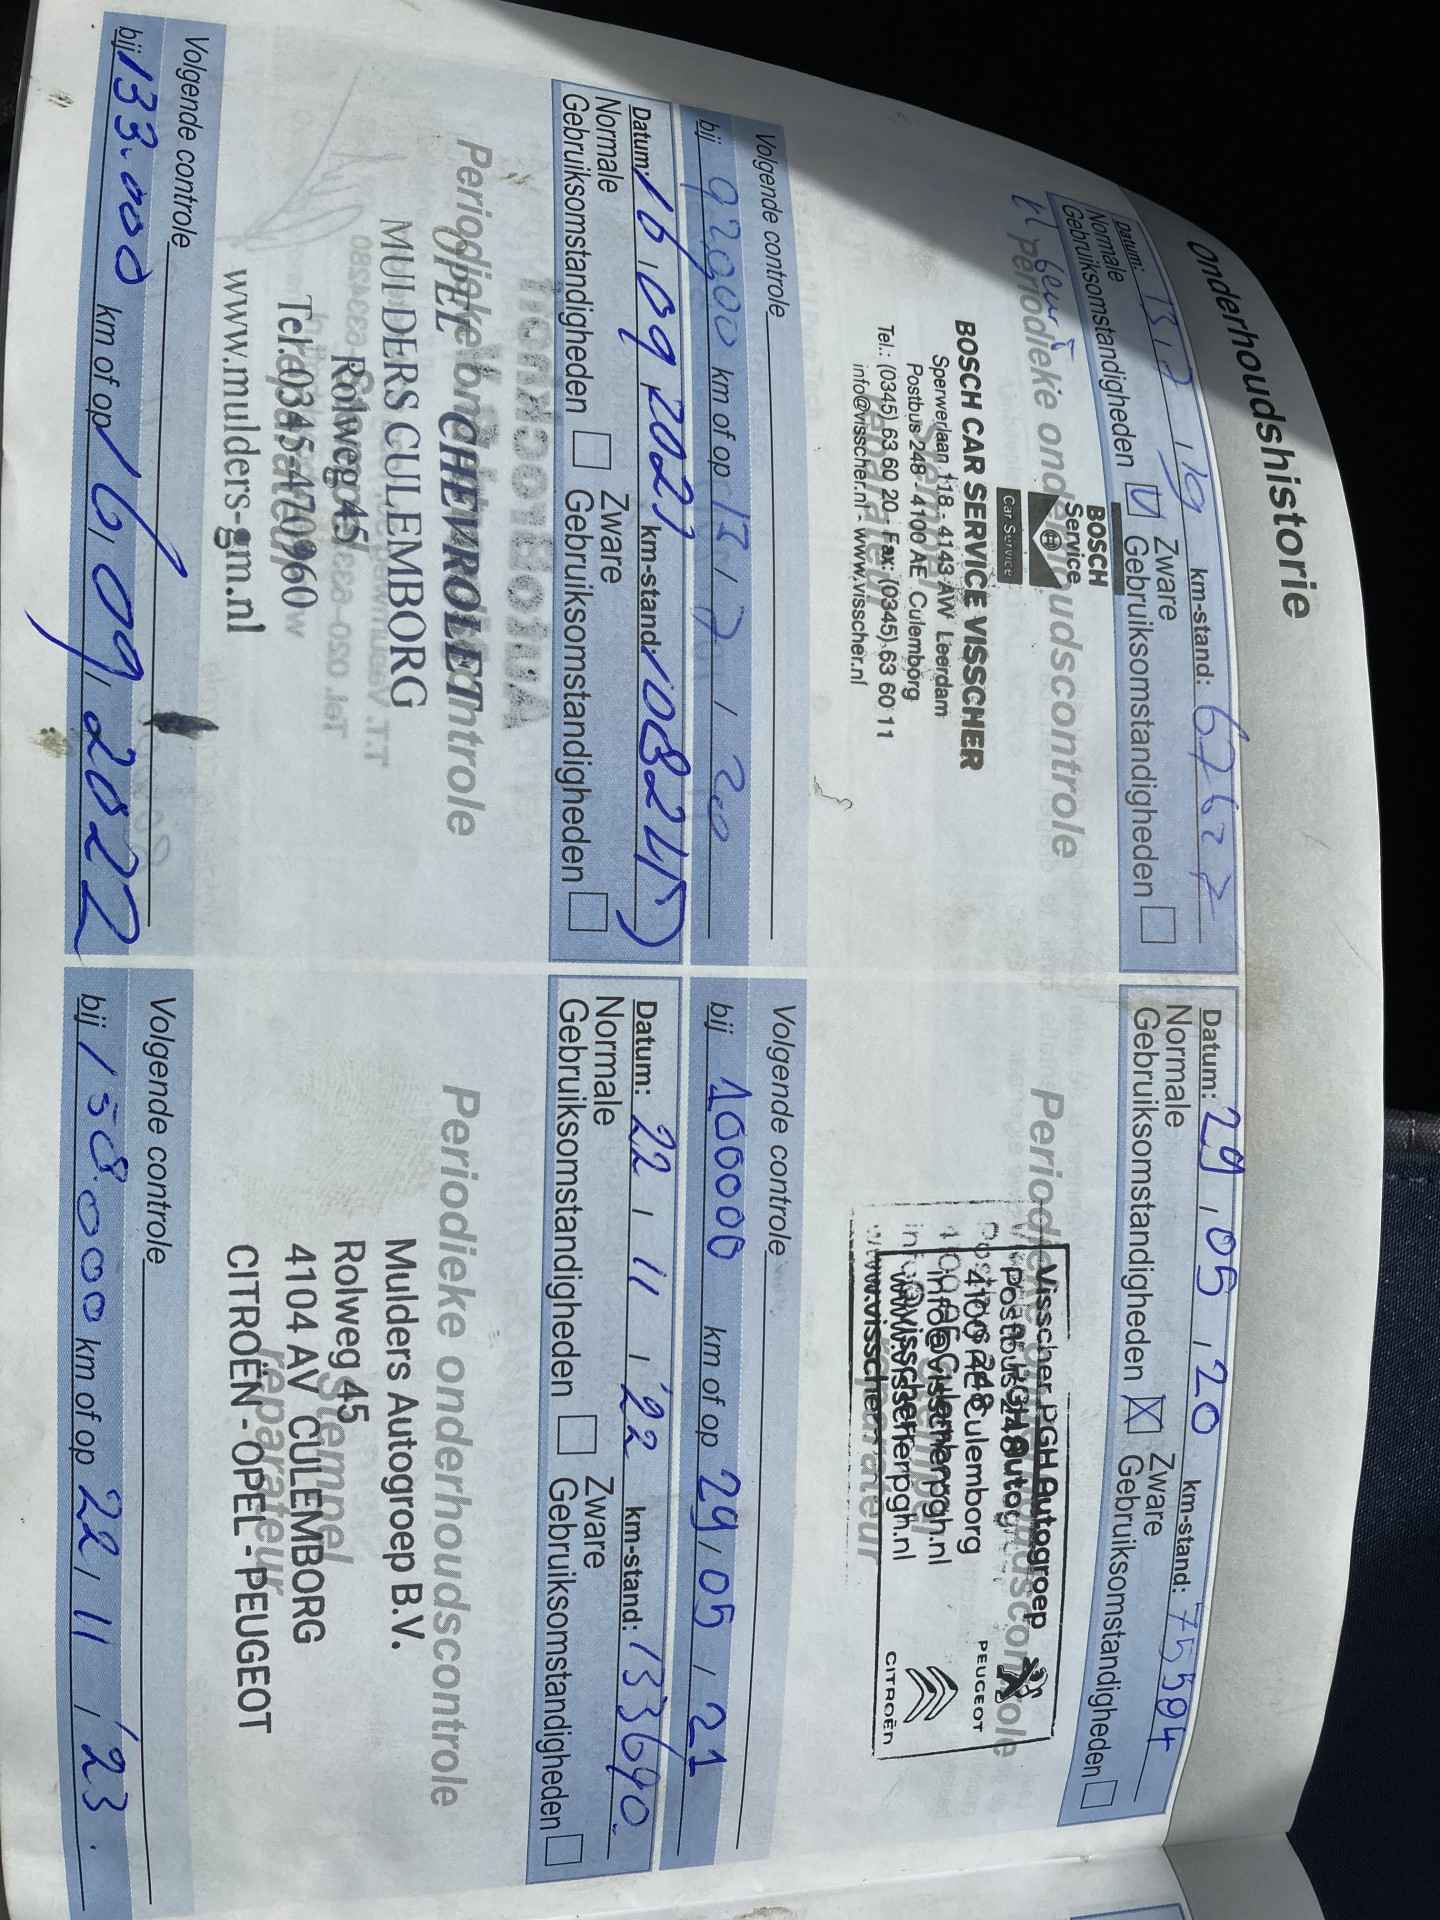 Onderhoudshistorie
Datum: 13, 7, 19 km-stand:
Normale Gebruiksomstandigheden Zware Gebruiksomstandigheden
Periodieke onderhoudscontrole
BOSCH
Service
Car Service
BOSCH CAR SERVICE VISSCHER
Sperwerlaan 118 - 4143 AW Leerdam
Postbus 248 - 4100 AE Culemborg
Tel.: (0345) 63 60 20 - Fax: (0345) 63 60 11
info@visscher.nl - www.visscher.nl
Volgende controle
bij 92000 km of op 13, 7, 20
Datum: 29, 05, 20 km-stand: 75594
Normale Gebruiksomstandigheden Zware Gebruiksomstandigheden
Periodieke onderhoudscontrole
Visscher PGH Autogroep
Postbus 248
4100 AE Culemborg
info@visscherpgh.nl
www.visscherpgh.nl
PEUGEOT
CITROËN
Volgende controle
bij 100000 km of op 29, 05, 21
Datum: 16, 09, 2021 km-stand: 108245
Normale Gebruiksomstandigheden Zware Gebruiksomstandigheden
Periodieke onderhoudscontrole
OPEL CHEVROLET
MULDERS CULEMBORG
Rolweg 45
Tel. 0345-470960
www.mulders-gm.nl
Volgende controle
bij 133.000 km of op 16, 09, 2022
Datum: 22, 11, '22 km-stand: 133690
Normale Gebruiksomstandigheden Zware Gebruiksomstandigheden
Periodieke onderhoudscontrole
Stempel
reparateur
Mulders Autogroep B.V.
Rolweg 45
4104 AV CULEMBORG
CITROËN - OPEL - PEUGEOT
Volgende controle
bij 158.000 km of op 22, 11, '23.